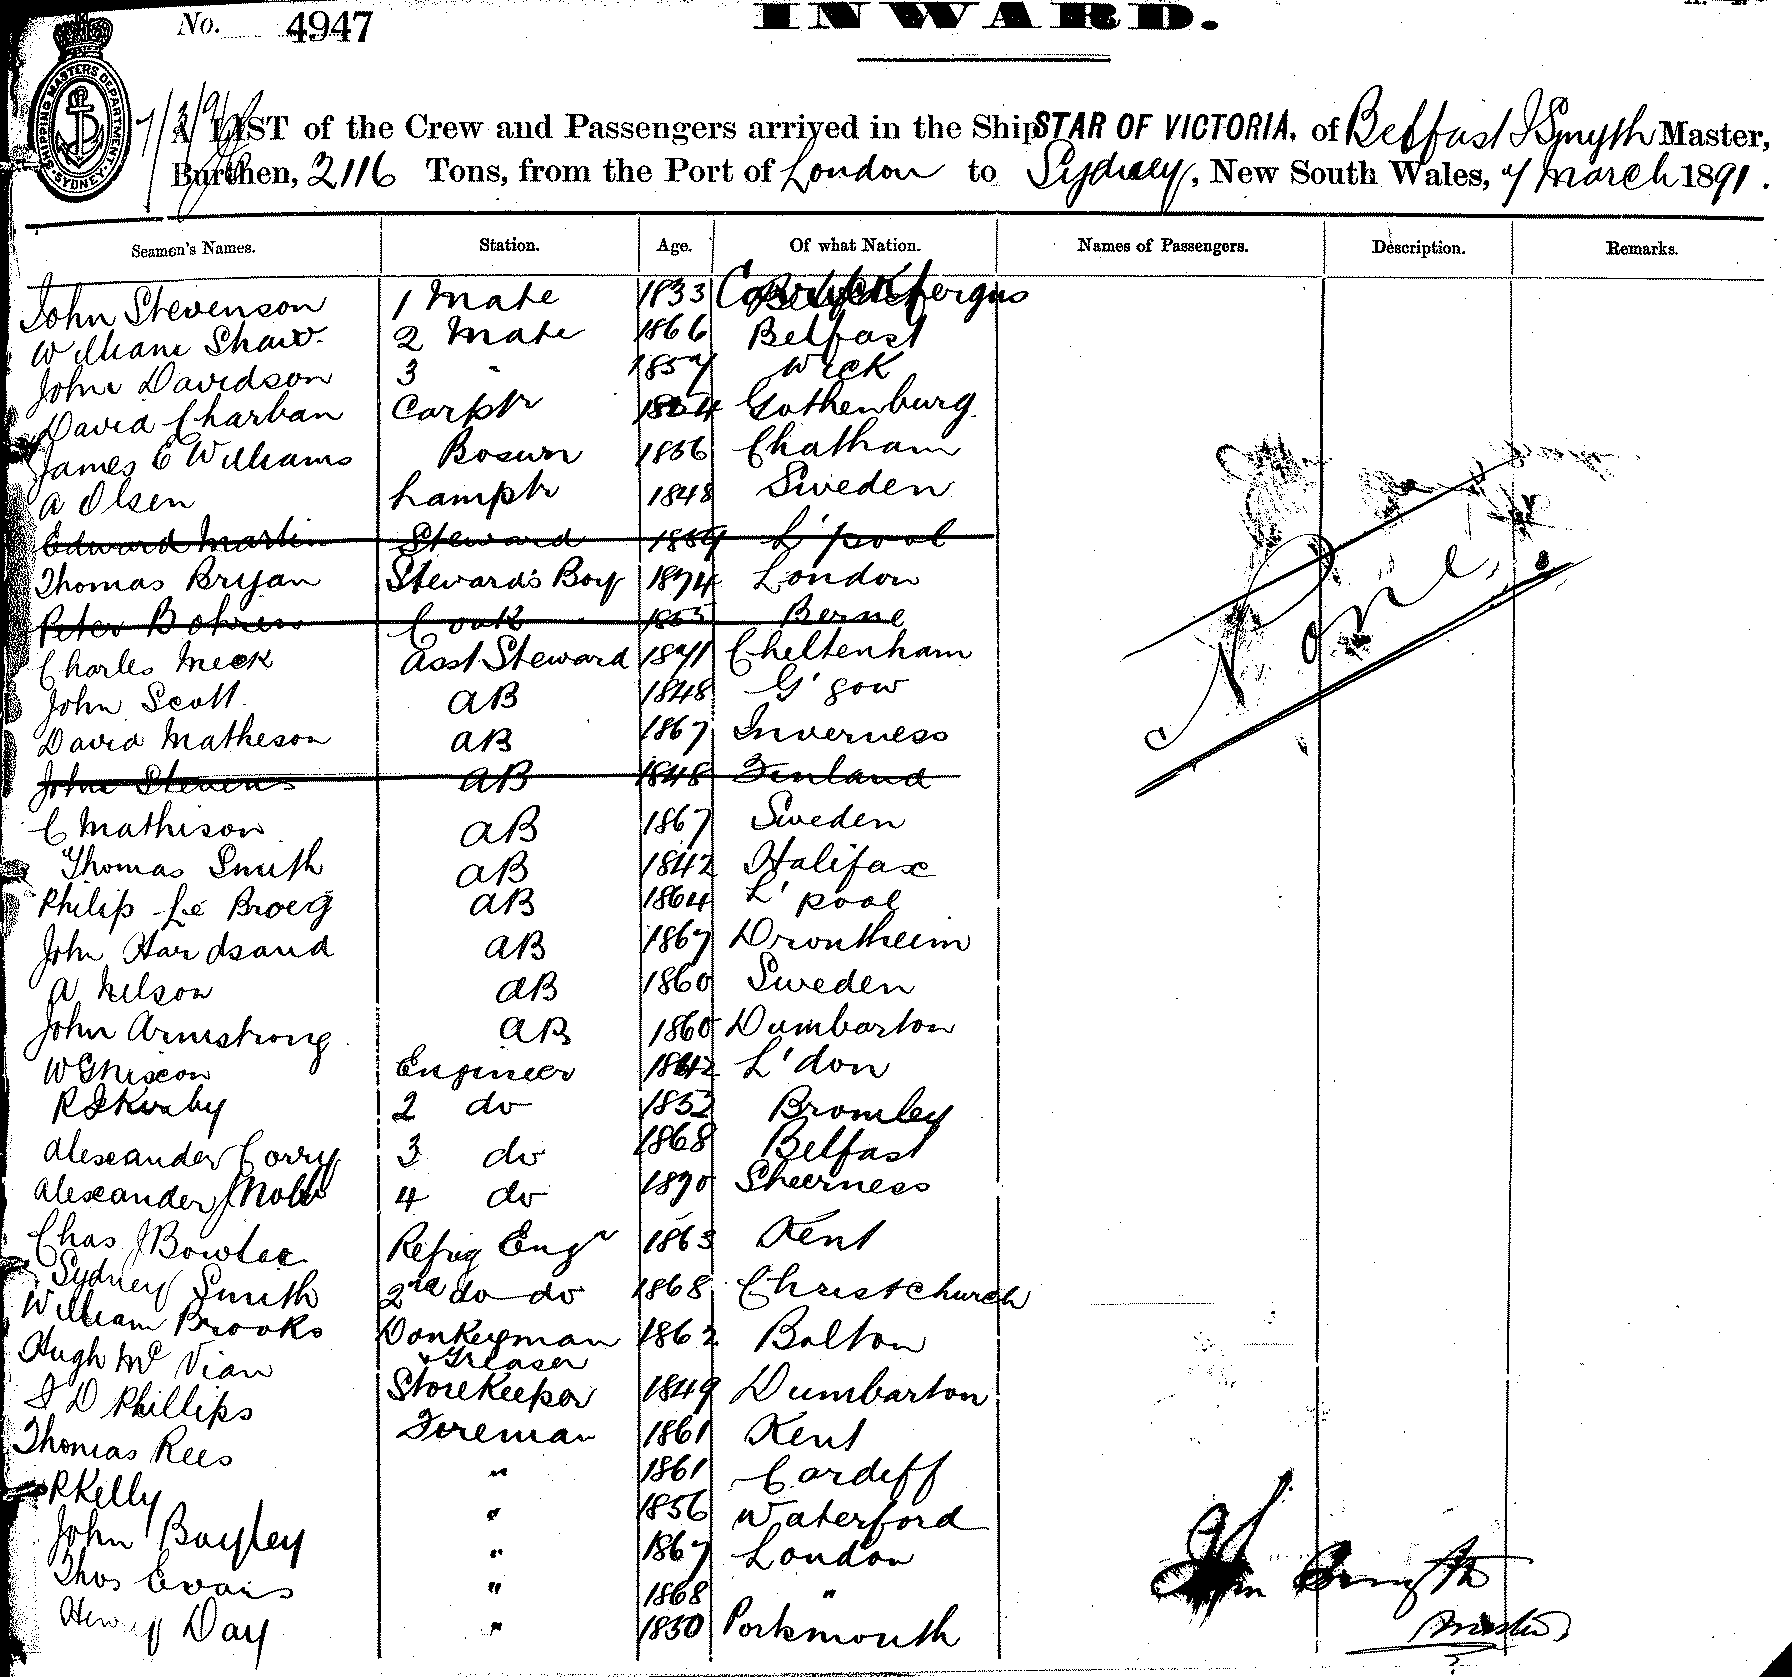 No. 4947
INWARD.
SHIPPING MASTERS DEPARTMENT SYDNEY
A LIST of the Crew and Passengers arrived in the Ship STAR OF VICTORIA. of Belfast J Smyth Master,
Burthen, 2116 Tons, from the Port of London to Sydney, New South Wales, 7 March 1891.
Seamen's Names. Station. Age. Of what Nation. Names of Passengers. Description. Remarks.
John Stevenson 1 Mate 1833 Carrickfergus
William Shaw 2 Mate 1866 Belfast
John Davidson 3 " 1857 Wick
David Charban Carptr Gothenburg
James E Williams Bosun 1856 Chatham
A Olsen Lamptr 1848 Sweden
Edward Martin Steward 1859 L'pool
Thomas Bryan Steward's Boy 1874 London
Peter Bohren Cook 1855 Berne
Charles Meek Asst Steward 1871 Cheltenham
John Scott AB 1848 G'gow
David Matheson AB 1867 Inverness
John Stevens AB 1848 Finland
C Mathison AB 1867 Sweden
Thomas Smith AB 1842 Halifax
Philip Le Broeg AB 1864 L'pool
John Hardsand AB 1867 Drontheim
A Nelson AB 1860 Sweden
John Armstrong AB 1860 Dumbarton
W G Nixon Engineer 1842 L'don
R J Kirby 2 do 1852 Bromley
Alexander Corry 3 do 1868 Belfast
Alexander J Noble 4 do 1870 Sheerness
Chas J Bowlee Refrig Engr 1863 Kent
Sydney Smith 2nd do do 1868 Christchurch
William Brooks Donkeyman & Greaser 1862 Bolton
Hugh Mc Vian Storekeeper 1849 Dumbarton
J D Phillips Fireman 1861 Kent
Thomas Rees " 1861 Cardiff
P Kelly " 1856 Waterford
John Bayley " 1867 London
Thos Evans " 1868 "
Henry Day " 1850 Portsmouth
None
John Smyth
Master